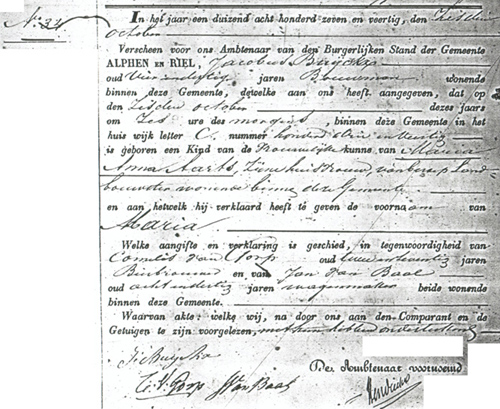 No. 34
In het jaar een duizend acht honderd zeven en veertig, den Zesden
october
Verscheen voor ons Ambtenaar van den Burgerlijken Stand der Gemeente
ALPHEN EN RIEL, Jacobus
oud Vier en dertig jaren Bouwman wonende
binnen deze Gemeente, dewelke aan ons heeft aangegeven, dat op
den Zesden october dezes jaars
om Zes ure des morgens, binnen deze Gemeente in het
huis wijk letter C. nummer honderd drie en veertig
is geboren een Kind van de Vrouwelijke kunne van Maria
Anna Aarts, Zijne huisvrouw, van beroep Land-
bouwster wonende binnen deze Gemeente
en aan hetwelk hij verklaard heeft te geven de voornaam van
Maria
Welke aangifte en verklaring is geschied, in tegenwoordigheid van
Cornelis van Gorp oud twee en veertig jaren
en van Jan van Baal
oud acht en dertig jaren wagenmaker beide wonende
binnen deze Gemeente.
Waarvan akte: welke wij, na door ons aan den Comparant en de
Getuigen te zijn voorgelezen, met hen hebben onderteekend
De Ambtenaar voornoemd
C. V. Gorp J Van Baal